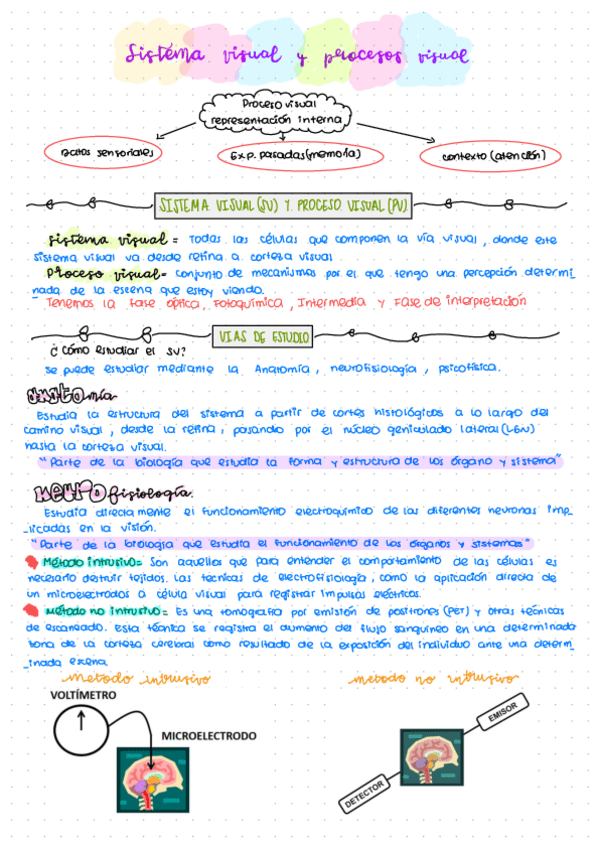 Sistema visual y procesos visual
Proceso visual
representación interna
Datos sensoriales
Exp. pasadas (memoria)
contexto (atención)
SISTEMA VISUAL (SV) Y PROCESO VISUAL (PV)
Sistema visual = Todas las células que componen la vía visual, donde este
sistema visual va desde retina a corteza visual
Proceso visual= conjunto de mecanismos por el que tengo una percepción determi_
nada de la escena que estoy viendo.
Tenemos la fase óptica, Fotoquímica, Intermedia y Fase de interpretación
VIAS DE ESTUDIO
¿Cómo estudiar el SV?
Se puede estudiar mediante la Anatomía, neurofisiología, psicofísica.
anatomía
Estudia la estructura del sistema a partir de cortes histológicos a lo largo del
camino visual, desde la retina, pasando por el núcleo geniculado lateral (LGN)
hasta la corteza visual.
"Parte de la biología que estudia la forma y estructura de los órgano y sistema"
neurofisiología.
Estudia directamente el funcionamiento electroquímico de las diferentes neuronas imp_
_licadas en la visión.
"Parte de la biología que estudia el funcionamiento de los órganos y sistemas"
Método intrusivo= Son aquellos que para entender el comportamiento de las células es
necesario destruir tejidos. Las tecnicas de electrofisiología, como la aplicación directa de
un microelectrodos a célula visual para registrar impulsos eléctricos.
Método no intrusivo= Es una tomografía por emisión de positrones (PET) y otras técnicas
de escaneado. Esta técnica se registra el aumento del flujo sanguíneo en una determinada
zona de la corteza cerebral como resultado de la exposición del individuo ante una determ_
_inada escena
Metodo intrusivo
metodo no intrusivo
VOLTÍMETRO
MICROELECTRODO
EMISOR
DETECTOR